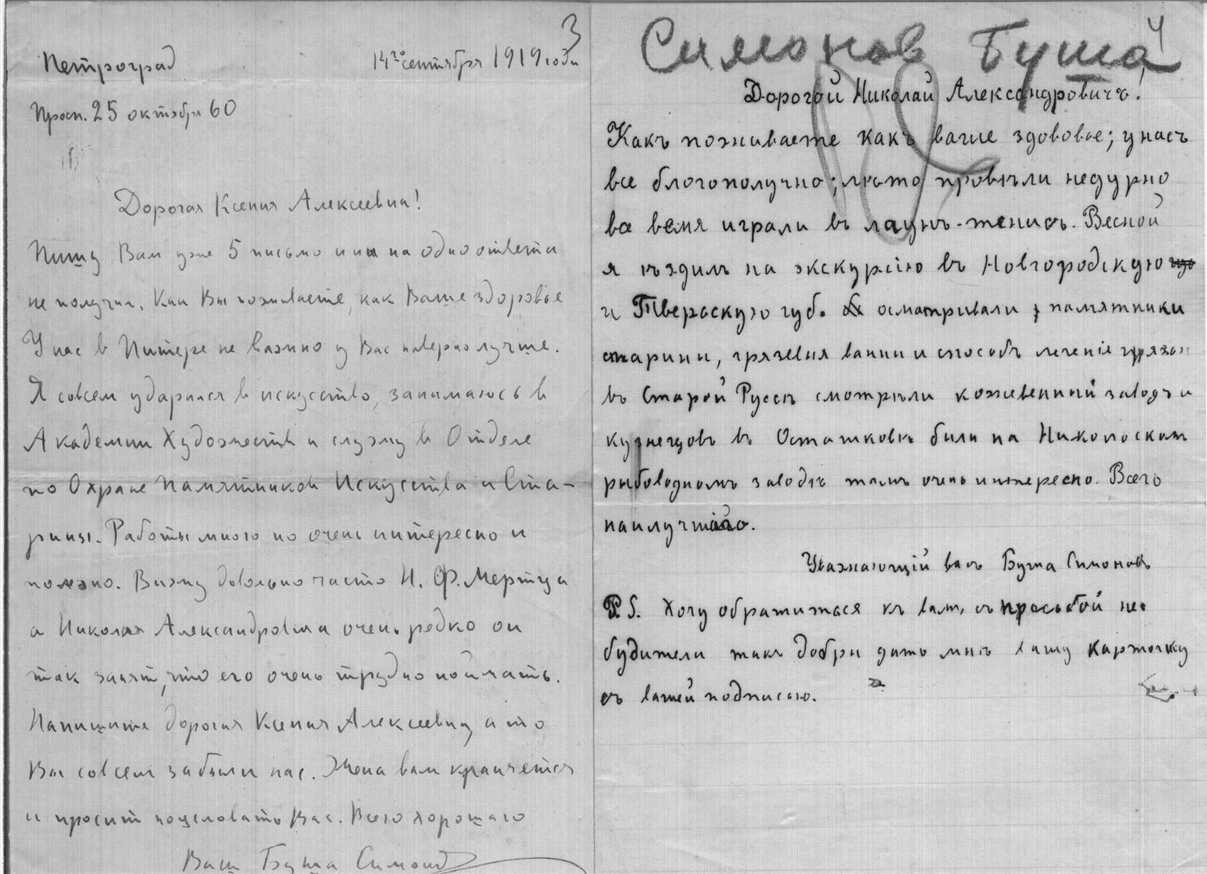 3
Петроград 14го сентября 1919 года
Просп. 25 октября 60
Дорогая Ксения Алексеевна!
Пишу Вам уже 5 письмо и ни на одно ответа
не получил. Как Вы поживаете, как Ваше здоровье
У нас в Питере не важно у Вас наверно лучше.
Я совсем ударился в искусство, занимаюсь в
Академии Художеств и служу в Отделе
по Охране Памятников Искусства и Ста-
рины. Работы много но очень интересно и
полезно. Вижу довольно часто И. Ф. Мертца
а Николая Александровича очень редко он
так занят, что его очень трудно поймать.
Напишите дорогая Ксения Алексеевна а то
Вы совсем забыли нас. Жена вам кланяется
и просит поцеловать Вас. Всего хорошаго
Ваш Буша Симонов
4
Симонов Буша
Дорогой Николай Александровичъ!
Какъ поживаете какъ ваше здововье; у насъ
все блогополучно; лѣто провѣли недурно
все вемя играли въ лаунъ-тенисъ. Весной
я ѣздилъ на экскурсію въ Новгородскую
и Тверскую губ. осматривали памятники
старины, грязевыя ванны и способъ леченіе грязью
въ Старой Руссѣ смотрѣли кожевенный заводъ и
кузнецовъ въ Осташковѣ были на Никольском
рыбоводномъ заводѣ тамъ очень интересно. Всего
наилучшаго.
Уважающій васъ Буша Симоновъ
P.S. Хочу обратиться къ вам, съ просьбой не
будители такъ добры дать мнѣ вашу карточку
съ вашей подписью.